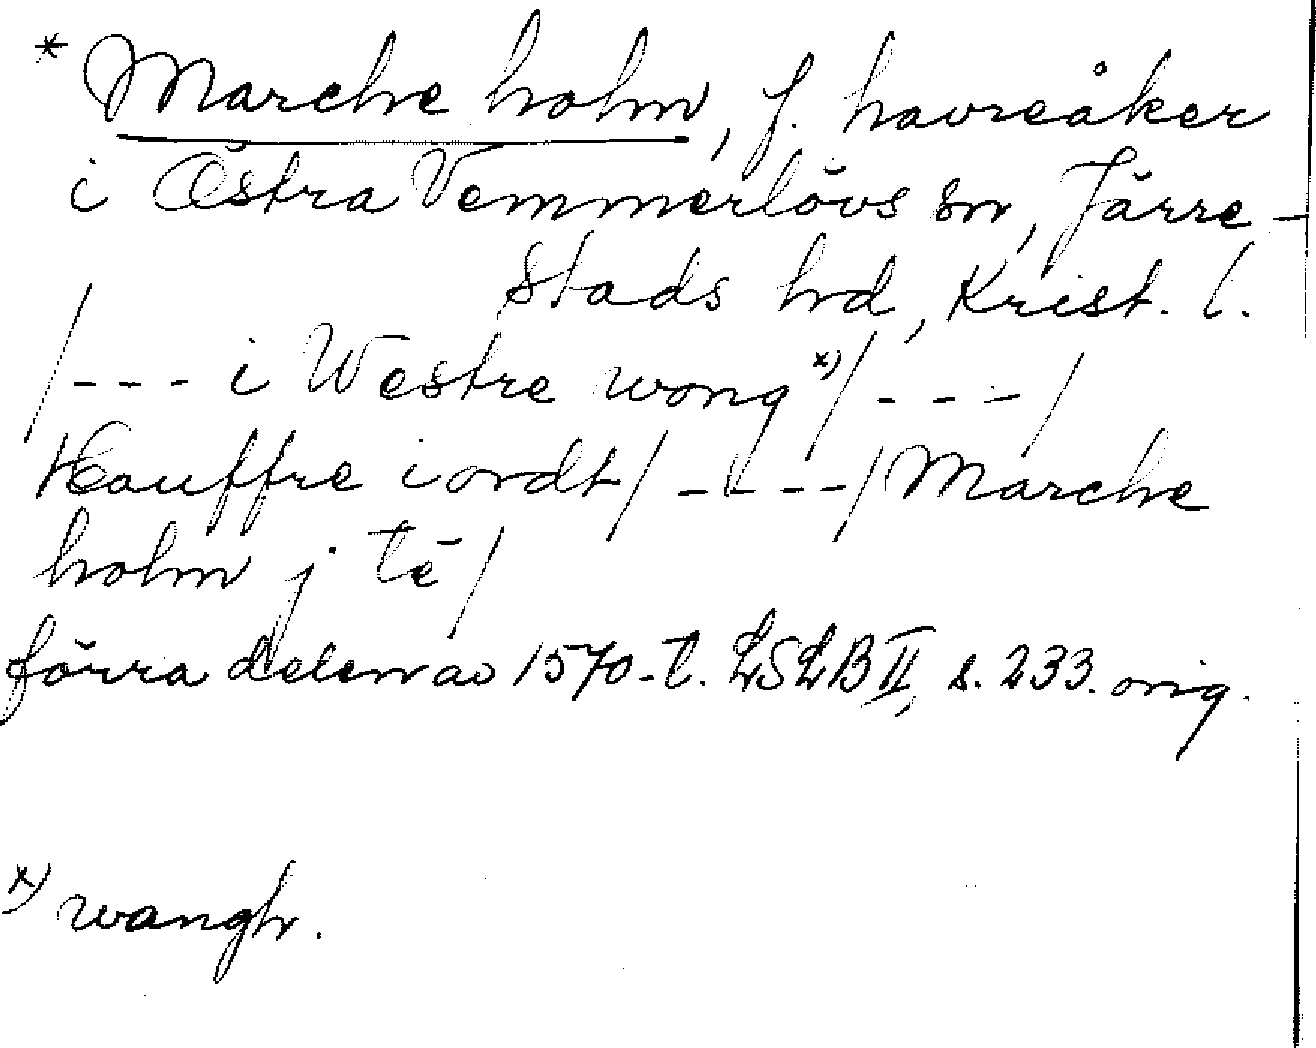 * Marche holm, f. havreåker
i Östra Vemmerlövs sn, Järre-
stads hd, Krist. l.
/--- i Westre wong x)/---/
Hauffre iordt/----/Marche
holm j tē/
förra delen av 1570-t. LSLB II, s. 233. orig.
x) wangh.